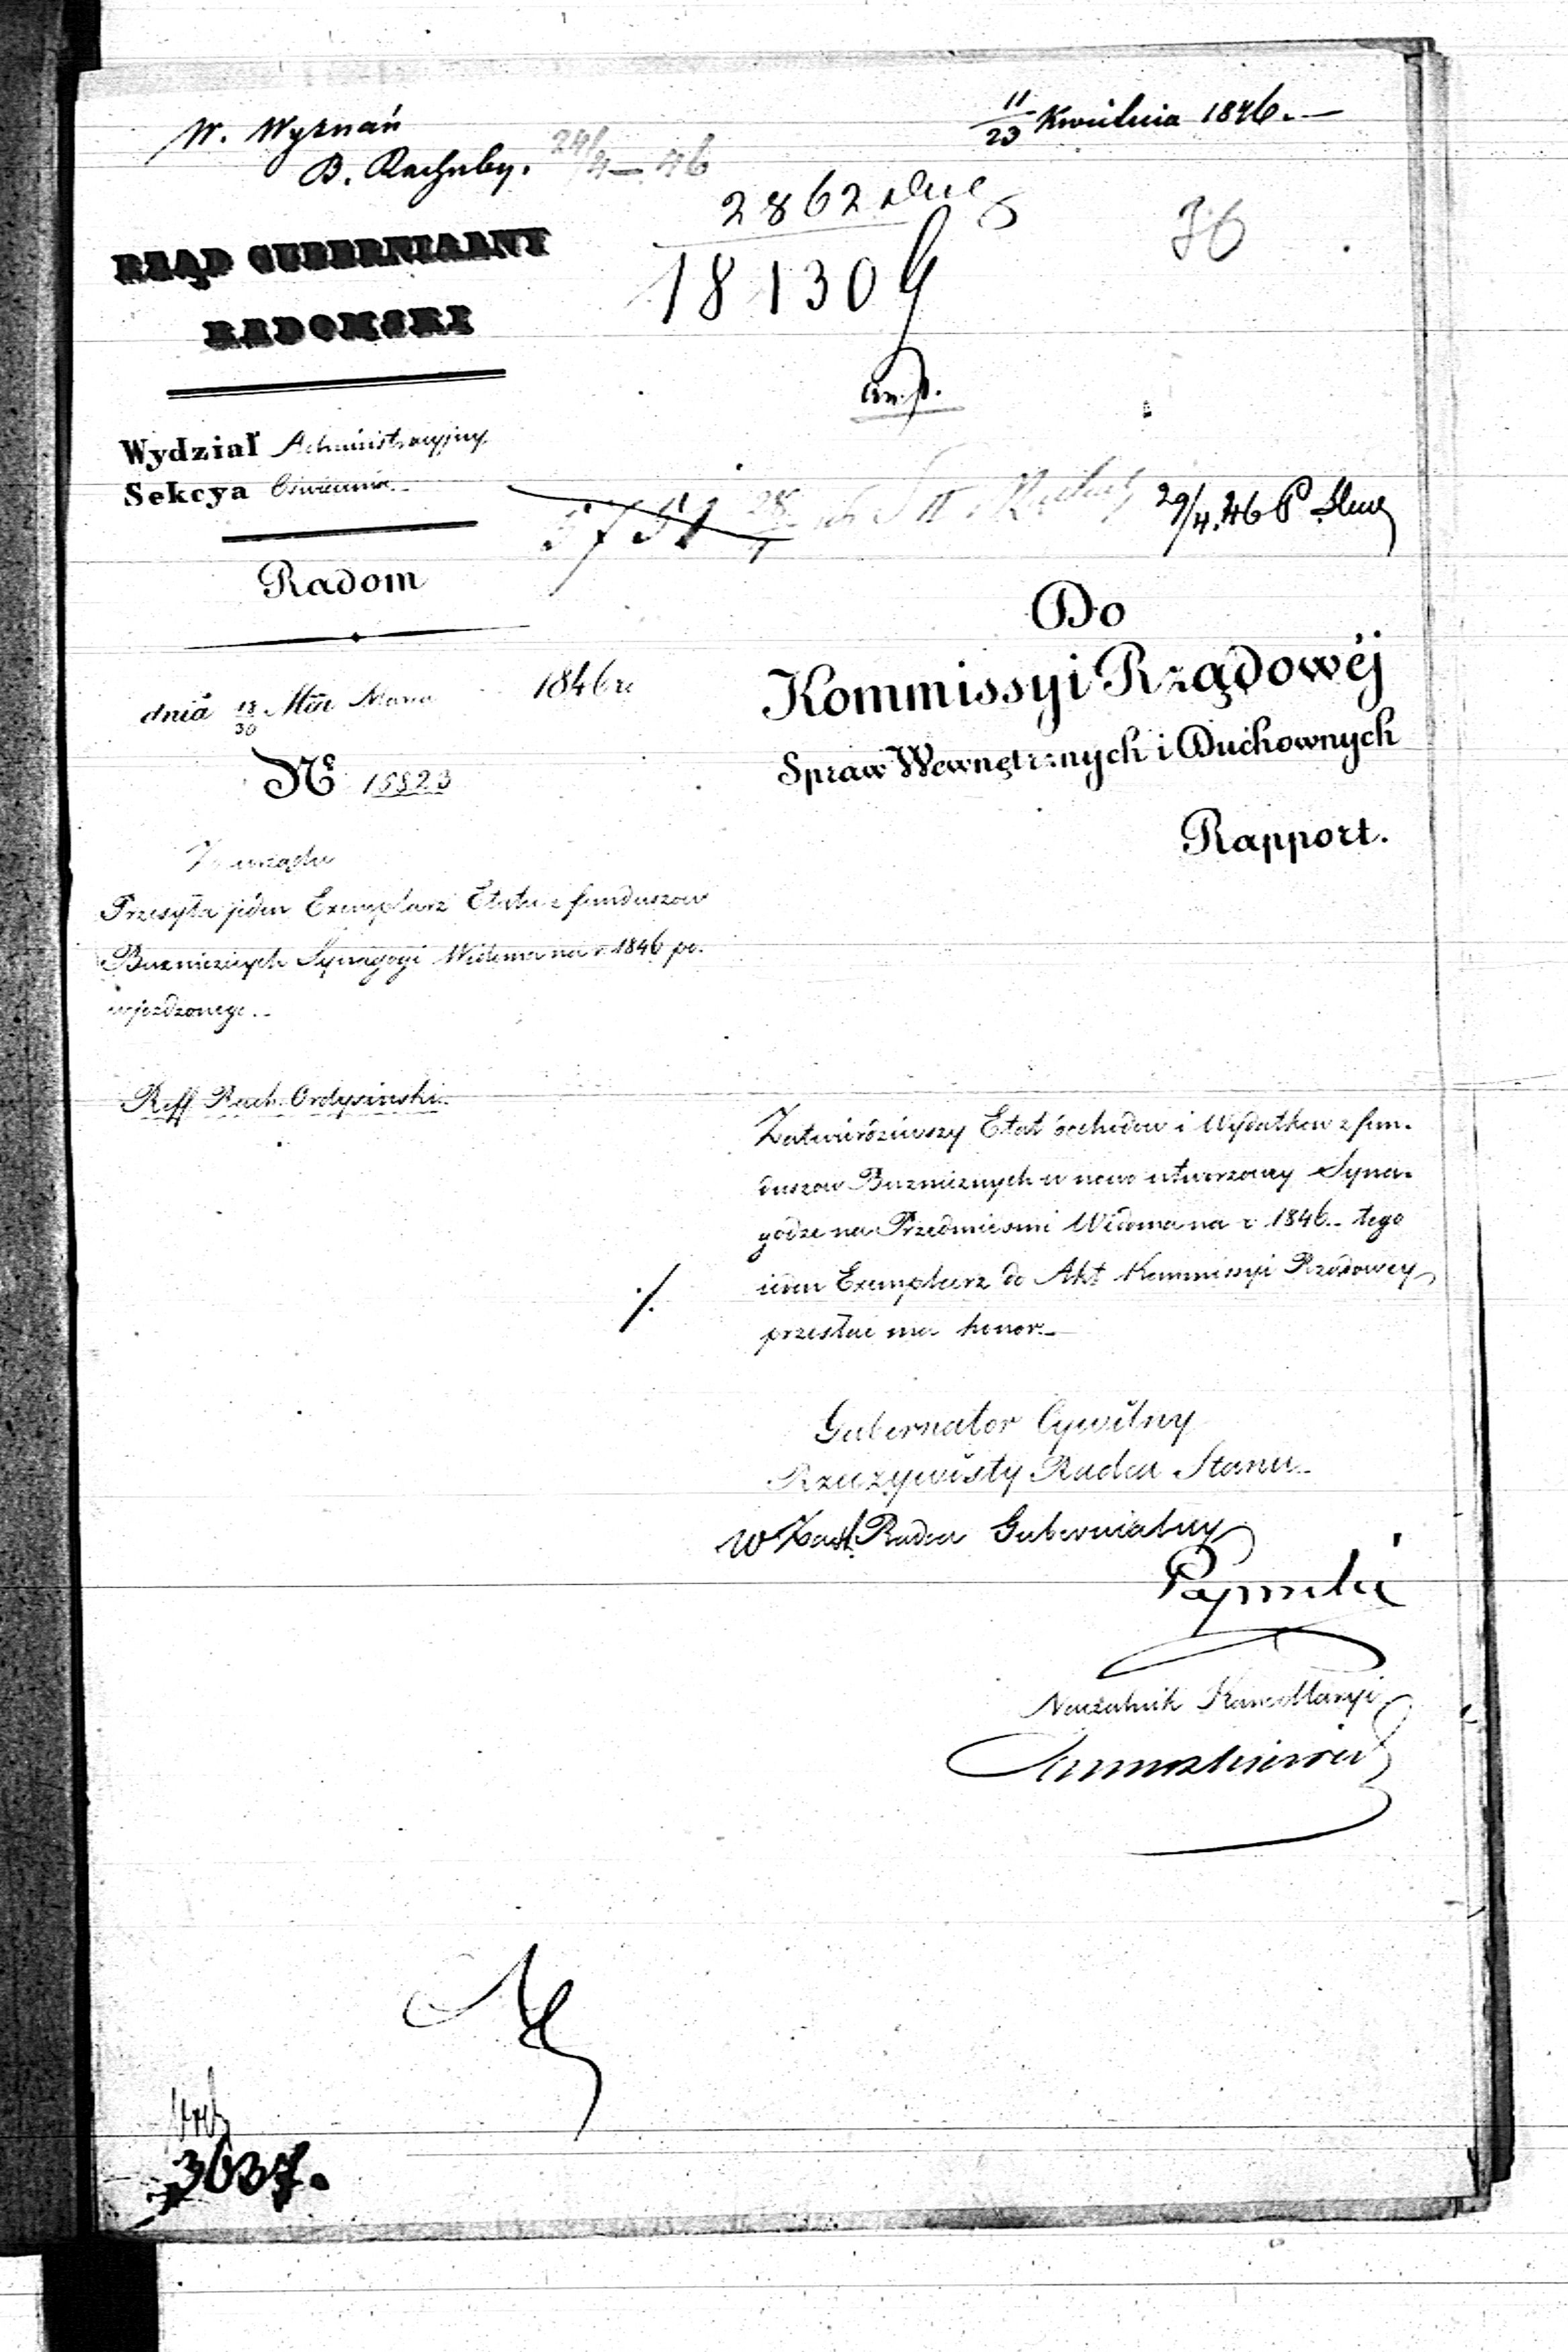 W. Wyznań
B. Rachuby.
24/4 — 46
11/23 Kwietnia 1846. —
2862
18130
36
RZĄD GUBERNIALNY
RADOMSKI
Wydział Administracyjny
Sekcya
5751
29/4.46
Radom
Do
Kommissyi Rządowéj
Spraw Wewnętrznych i Duchownych
Rapport.
dnia 18/30 1846 r.
№ 15823
Z urzędu
Przesyła jeden Exemplarz Etatu z funduszow
Buznicznych Synagogi Widoma na r. 1846 po.
Reff Rach.
Zatwierdziwszy Etat dochodow i Wydatkow z fun-
duszow Buznicznych w nowo utworzoney Syna-
godze na Przedmiesciu Widoma na r. 1846. tego
ieden Exemplarz do Akt Kommissyi Rządowey
przesłac ma honor. —
Gubernator Cywilny
Rzeczywisty Radca Stanu
W Zast. Radca Gubernialny
Naczelnik Kancellaryi
3637.